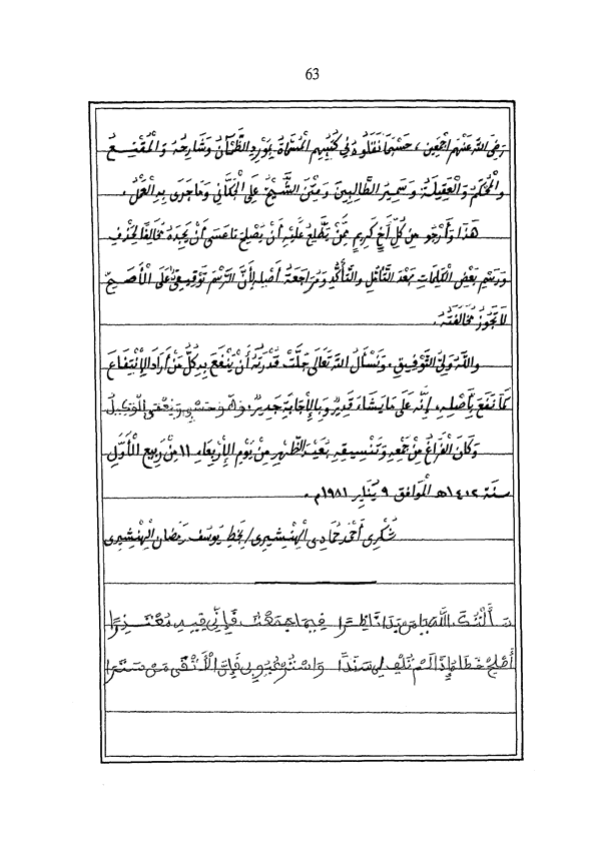 63
رَضِيَ اللَّهُ عَنْهُم أَجْمَعِينَ، حَسْبَمَا نَقَلُوهُ فِي كُتُبِهِم الْمُسَمَّاةِ بِمَوْرِدِ الظَّمْآنِ وَشَارِحِهِ وَالْمُقْنِعِ
وَالْمُحْكَمِ وَالْعَقِيلَةِ وَسَمِيرِ الطَّالِبِينَ وَمَتْنِ الشَّيْخِ عَلِي الْجَكَّانِي وَمَا جَرَى بِهِ الْعَمَلُ.
هَذَا وَأَرْجُو مِن كُلِّ أَخٍ كَرِيمٍ مِمَّنْ يَطَّلِعُ عَلَيْهِ أَنْ يُصْلِحَ مَا عَسَى أَنْ يَجِدَهُ مُخَالِفًا لِحَذْفٍ
وَرَسْمِ بَعْضِ الْكَلِمَاتِ بَعْدَ التَّأَمُّلِ وَالتَّأَكُّدِ وَمُرَاجَعَةِ أَصْلِهِ لِأَنَّ الرَّسْمَ تَوْقِيفِيٌّ عَلَى الْأَصَحِّ
لَا تَجُوزُ مُخَالَفَتُهُ.
وَاللَّهُ وَلِيُّ التَّوْفِيقِ، وَنَسْأَلُ اللَّهَ تَعَالَى جَلَّتْ قُدْرَتُهُ أَنْ يَنْفَعَ بِهِ كُلَّ مَنْ أَرَادَ الِانْتِفَاعَ
كَمَا نَفَعَ بِأَصْلِهِ، إِنَّهُ عَلَى مَا يَشَاءُ قَدِيرٌ وَبِالْإِجَابَةِ جَدِيرٌ، وَهُوَ حَسْبِي وَنِعْمَ الْوَكِيلُ
وَكَانَ الْفَرَاغُ مِنْ جَمْعِهِ وَتَنْسِيقِهِ بُعَيْدَ الظُّهْرِ مِنْ يَوْمِ الْأَرْبِعَاءِ ١١ مِنْ رَبِيعِ الْأَوَّلِ
سنة ١٤٠٢هـ الْمُوَافِق ٩ يَنَايِر ١٩٨١م.
شُكْرِي أَحْمَد حَمَّادِي الْهِنْشِيرِي / بِخَطِّ يُوسُف رَمَضَان الْهِنْشِيرِي
سَأَلْتُكَ اللَّهَ يَا مَنْ بَدَا نَاظِرًا فِيمَا جَمَعْتُ فَإِنِّي فِيهِ مُعْتَذِرًا
أَصْلِحْ خَطَائِي إِذَا لَمْ تُلْفِ لِي سَنَدًا وَاسْتُرْ عُيُوبِي فَإِنَّ الْأَتْقَى مَنْ سَتَرَا